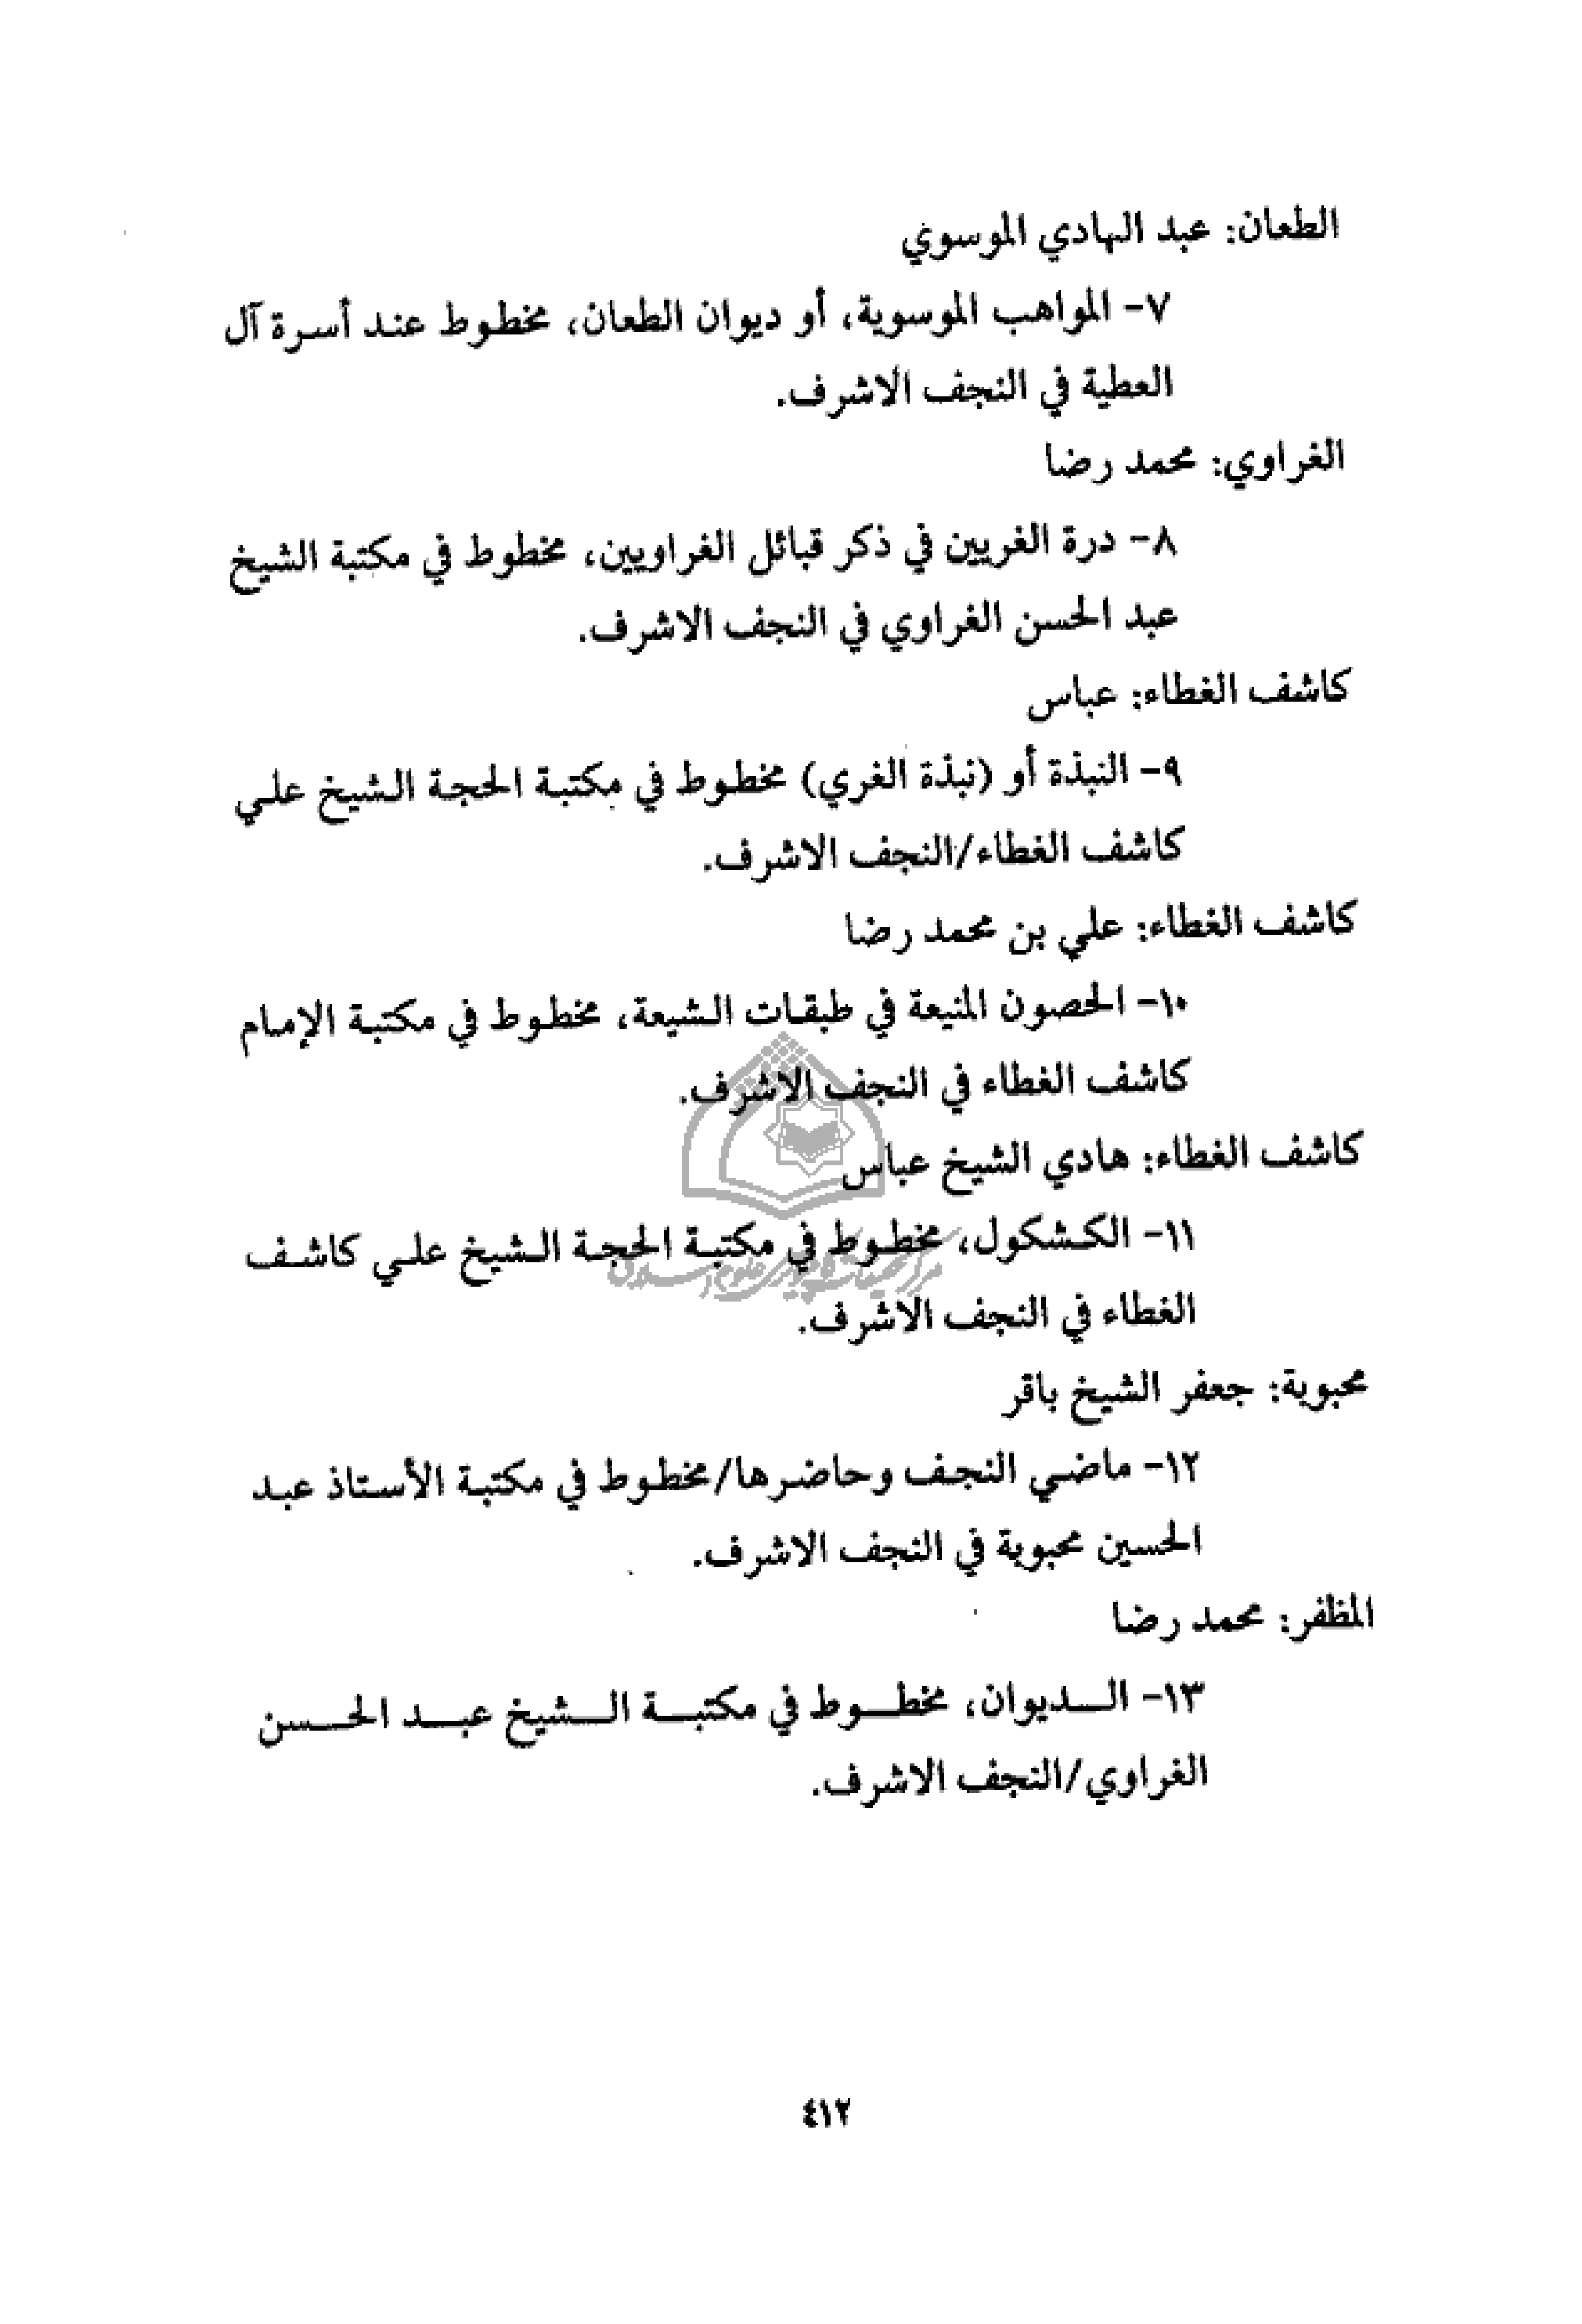 الطعان: عبد الهادي الموسوي
٧- المواهب الموسوية، أو ديوان الطعان، مخطوط عند أسرة آل
العطية في النجف الاشرف.
الغراوي: محمد رضا
٨- درة الغريين في ذكر قبائل الغراويين، مخطوط في مكتبة الشيخ
عبد الحسن الغراوي في النجف الاشرف.
كاشف الغطاء: عباس
٩- النبذة أو (نبذة الغري) مخطوط في مكتبة الحجة الشيخ علي
كاشف الغطاء/النجف الاشرف.
كاشف الغطاء: علي بن محمد رضا
١٠- الحصون المنيعة في طبقات الشيعة، مخطوط في مكتبة الإمام
كاشف الغطاء في النجف الاشرف.
كاشف الغطاء: هادي الشيخ عباس
١١- الكشكول، مخطوط في مكتبة الحجة الشيخ علي كاشف
الغطاء في النجف الاشرف.
محبوبة: جعفر الشيخ باقر
١٢- ماضي النجف وحاضرها/مخطوط في مكتبة الأستاذ عبد
الحسين محبوبة في النجف الاشرف.
المظفر: محمد رضا
١٣- الديوان، مخطوط في مكتبة الشيخ عبد الحسن
الغراوي/النجف الاشرف.
٤١٢